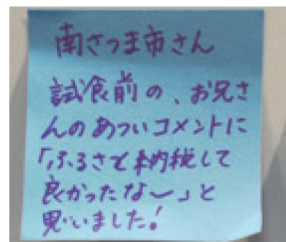 南さつま市さん
試食前の、お兄さ
んのあついコメントに
「ふるさと納税して
良かったな〜」と
思いました!